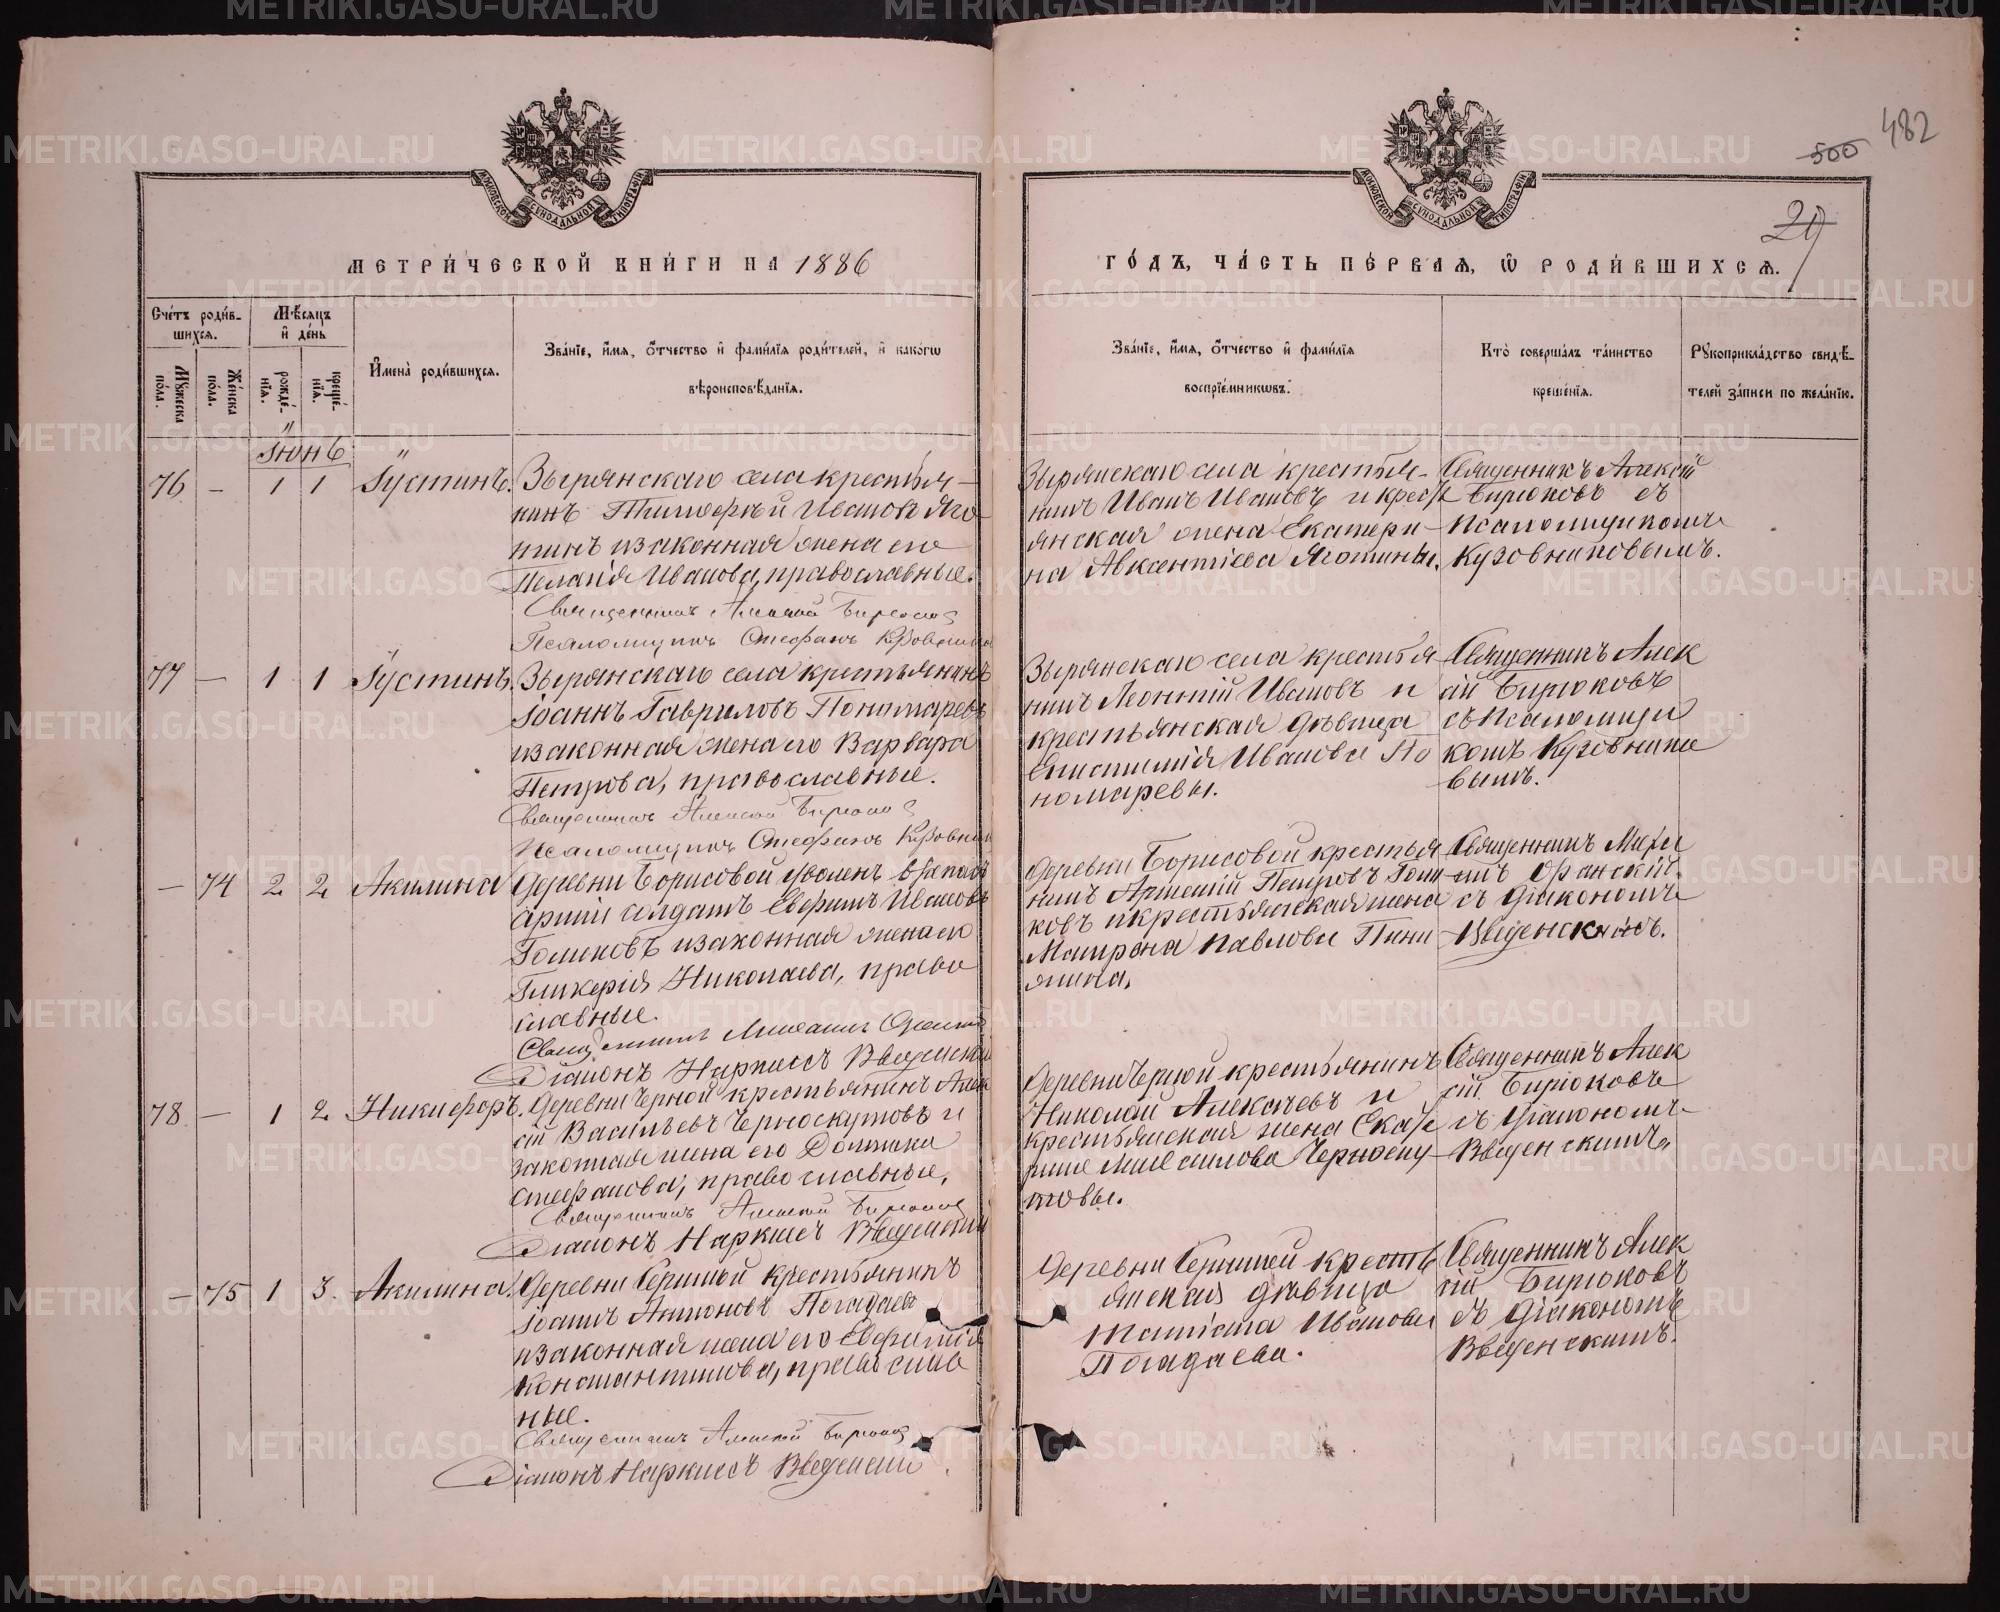 482
500
29
МОСКОВСКОЙ СѴНОДАЛЬНОЙ ТИПОГРАФІИ
МОСКОВСКОЙ СѴНОДАЛЬНОЙ ТИПОГРАФІИ
МЕТРИ́ЧЕСКОЙ КНИ́ГИ НА 1886
ГО́ДЪ, ЧА́СТЬ ПЕ́РВАЯ, Ѡ҆ РОДИ́ВШИХСЯ.
Сче́тъ роди́в-
шихся.
Мꙋжеска по́ла.
Же́нска по́ла.
Мѣ́сяцъ
и҆ де́нь
рожде́-
нїя.
креще́-
нїя.
И҆мена̀ роди́вшихся.
Зва́нїе, и҆́мя, ѻ҆́тчество и҆ фами́лїя роди́телей, и҆ како́гѡ
вѣроисповѣ́данїя.
Зва́нїе, и҆́мя, ѻ҆́тчество и҆ фами́лїя
воспрїе́мникѡвъ.
Кто̀ соверша́лъ та́инство
креще́нїя.
Рꙋкоприкла́дство свидѣ́-
телей за́писи по жела́нїю.
Іюнь
76 - 1 1 Іустинъ.
Зырянскаго села крестья-
нинъ Тимофѣй Ивановъ Яго
тинъ и законная жена его
Пелагія Иванова, православные.
Священникъ Алексій Бирюковъ
Псаломщикъ Стефанъ Кузовник
Зырянскаго села крестья-
нинъ Иванъ Ивановъ и крест
янская жена Екатери-
на Авксентіева Яготины.
Священникъ Алексій
Бирюковъ съ
Псаломщикомъ
Кузовниковымъ.
77 - 1 1 Іустинъ.
Зырянскаго села крестьянинъ
Іоаннъ Гавриловъ Пономаревъ
и законная жена его Варвара
Петрова, православные.
Священникъ Алексій Бирюковъ
Псаломщикъ Стефанъ Кузовник
Зырянскаго села крестья
нинъ Леонтій Ивановъ и
крестьянская дѣвица
Ивановы По
номаревы.
Священникъ Алек
сій Бирюковъ
съ Псаломщи
комъ Кузовнико
вымъ.
- 74 2 2 Акилина
Деревни Борисовой уволен. въ запасъ
арміи солдатъ Евфимъ Ивановъ
Голиковъ и законная жена его
Гликерія Николаева, право
славные.
Священникъ Михаилъ
Діаконъ Наркиссъ Введенскій
Деревни Борисовой крестья
нинъ Артемій Петровъ Голи
ковъ и крестьянская жена
Матрона Павлова Пини
жина.
Священникъ Миха
илъ
съ Діакономъ
Введенскимъ.
78 - 1 2 Никифоръ.
Деревни Черной крестьянинъ Алек
сій Васильевъ Черноскутовъ и
законная жена его Домника
Стефанова, православные,
Священникъ Алексій Бирюковъ
Діаконъ Наркиссъ Введенскій
Деревни Черной крестьянинъ
Николай Алексѣевъ и
крестьянская жена Екате
рина Черноску
товы.
Священникъ Алек
сій Бирюковъ
съ Діакономъ
Введенскимъ.
- 75 1 3. Акилина.
Деревни крестьянинъ
Іоаннъ Антоновъ Погадаевъ
и законная жена его Евфимія
Константинова, православ
ные.
Священникъ Алексій Бирюковъ
Діаконъ Наркиссъ Введенскій
Деревни кресть
янская дѣвица
Татіана Иванова
Погадаева.
Священникъ Алек
сій Бирюковъ
съ Діакономъ
Введенскимъ.
METRIKI.GASO-URAL.RU